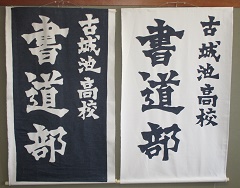 古城池高校
書道部
古城池高校
書道部